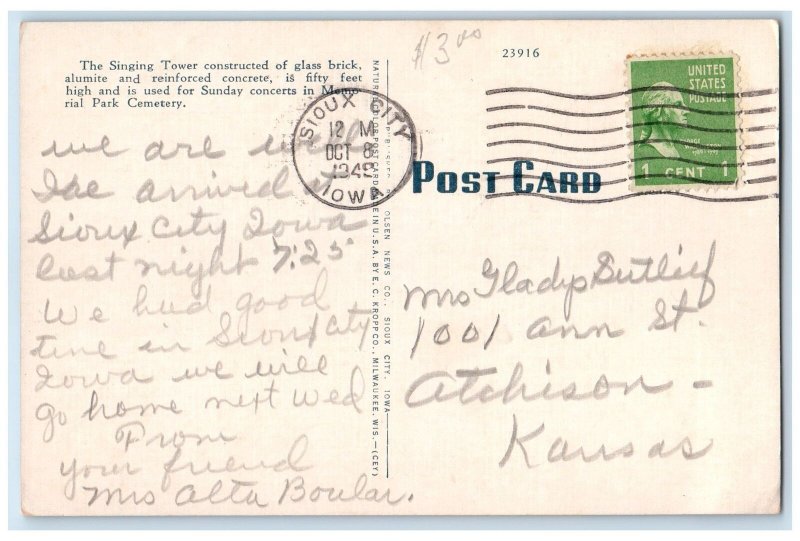 The Singing Tower constructed of glass brick,
alumite and reinforced concrete, is fifty feet
high and is used for Sunday concerts in Memo-
rial Park Cemetery.
$3.00
23916
UNITED
STATES
POSTAGE
1 CENT 1
SIOUX CITY
12 M
OCT 8
1949
IOWA
POST CARD
OLSEN NEWS CO., SIOUX CITY, IOWA
E. C. KROPP CO., MILWAUKEE, WIS.—(CEY)
we are
arrived
Sioux City Iowa
last night 7:25
We had good
time in Sioux City
Iowa we will
go home next Wed
From
your friend
Mrs Alta Boular.
Mrs Gladys Sutlief
1001 Ann St.
Atchison -
Kansas